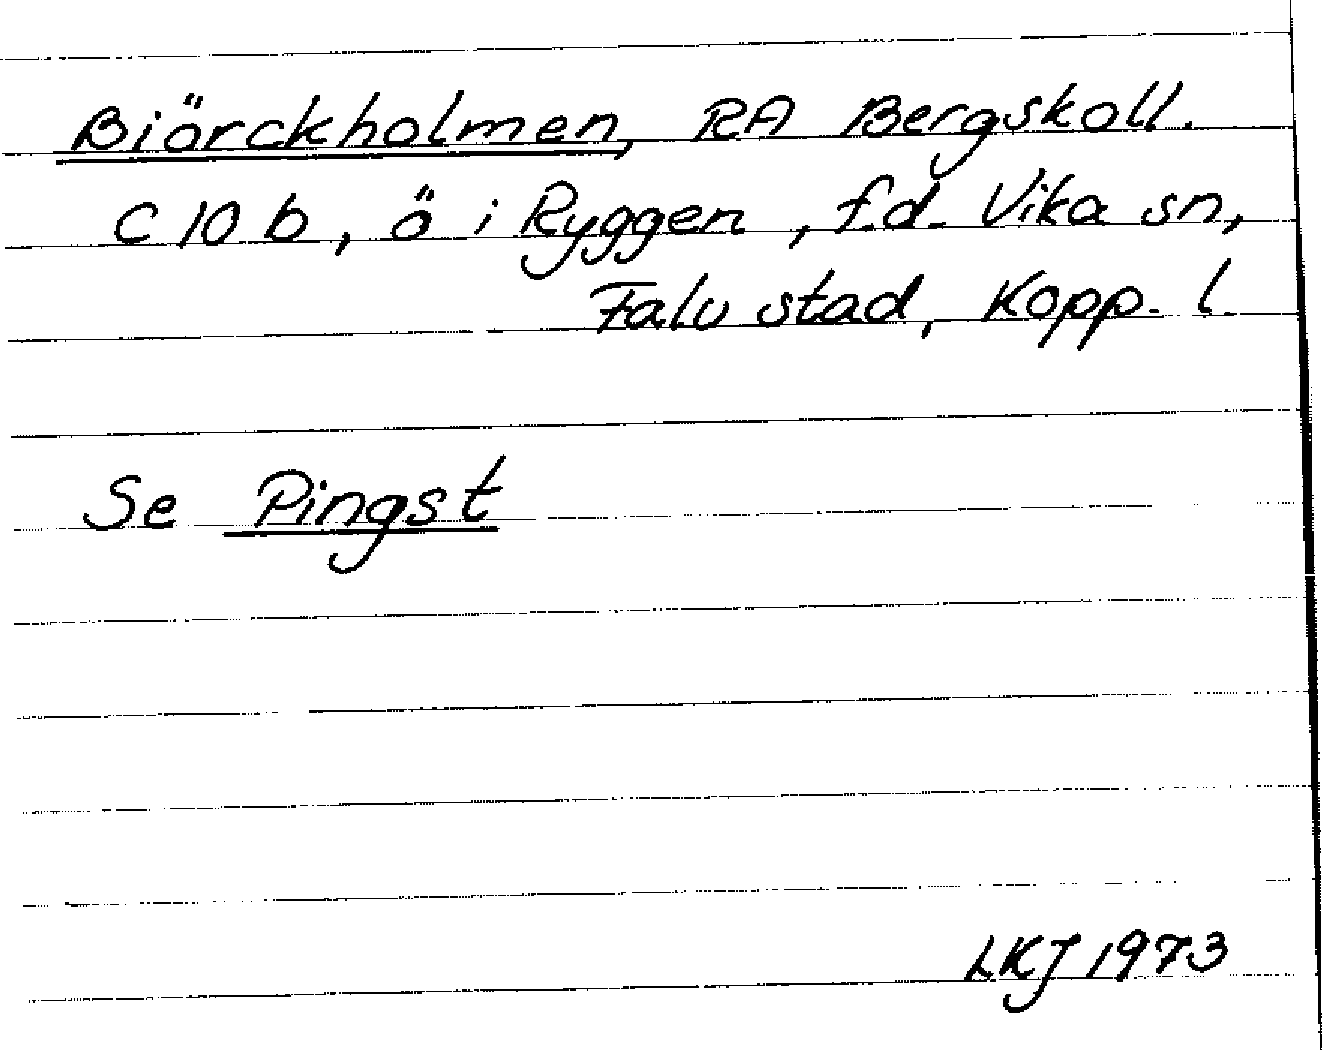 Biörckholmen, RA Bergskoll.
C 10 b, ö i Ryggen, f.d. Vika sn,
Falu stad, Kopp. l.
Se Pingst
LKJ 1973